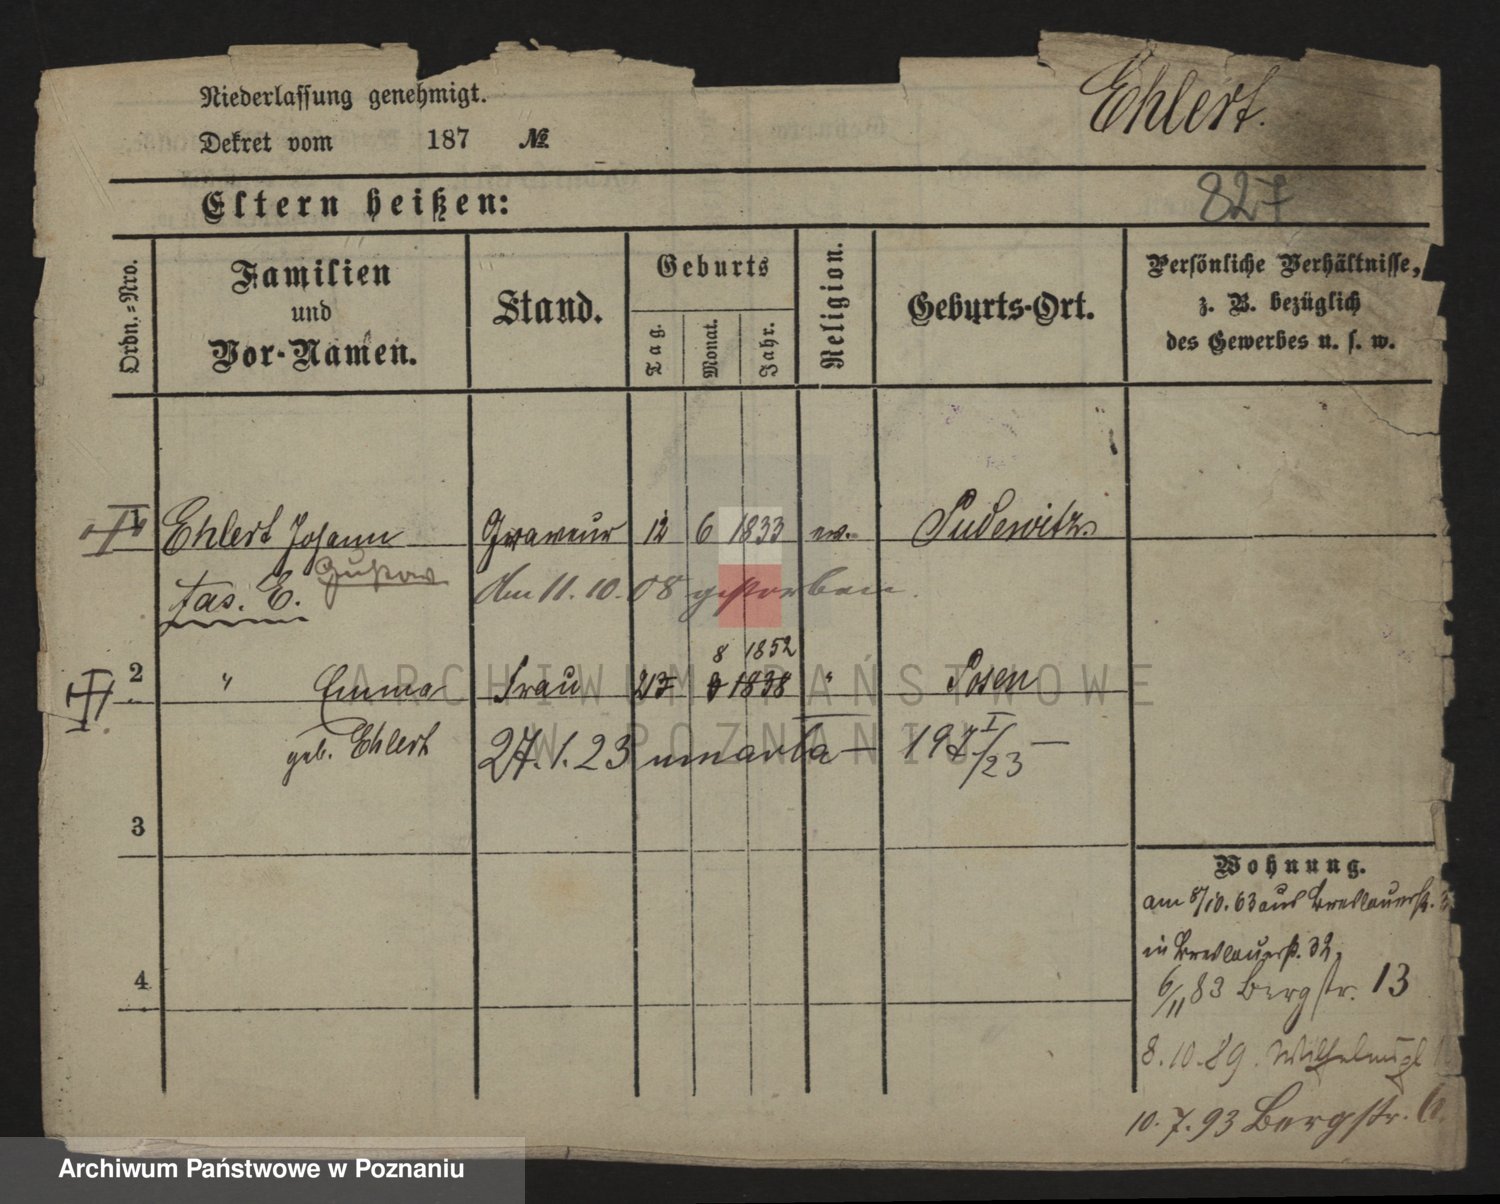 Niederlassung genehmigt.
Ehlert.
Dekret vom 187 №
Eltern heißen:
827
Ordn.-Nro.
Familien
und
Vor-Namen.
Stand.
Geburts
Tag.
Monat.
Jahr.
Religion.
Geburts-Ort.
Persönliche Verhältnisse,
z. B. bezüglich
des Gewerbes u. s. w.
1 Ehlert Johann Graveur 12 6 1833 ev. Pudewitz
Gustow
fas. E. Am 11.10.08 gestorben.
8 1852
2 " Emma Frau 1838 " Posen
geb. Ehlert 27.1.23 umarła — I/23 —
3
4
Wohnung.
am 8/10.63 aus Breslauerst.
in Breslauerst. 32,
6/11 83 Bergstr. 13
8.10.89. Wilhelmspl
10.7.93 Bergstr. 6.
ARCHIWUM PAŃSTWOWE
W POZNANIU
Archiwum Państwowe w Poznaniu